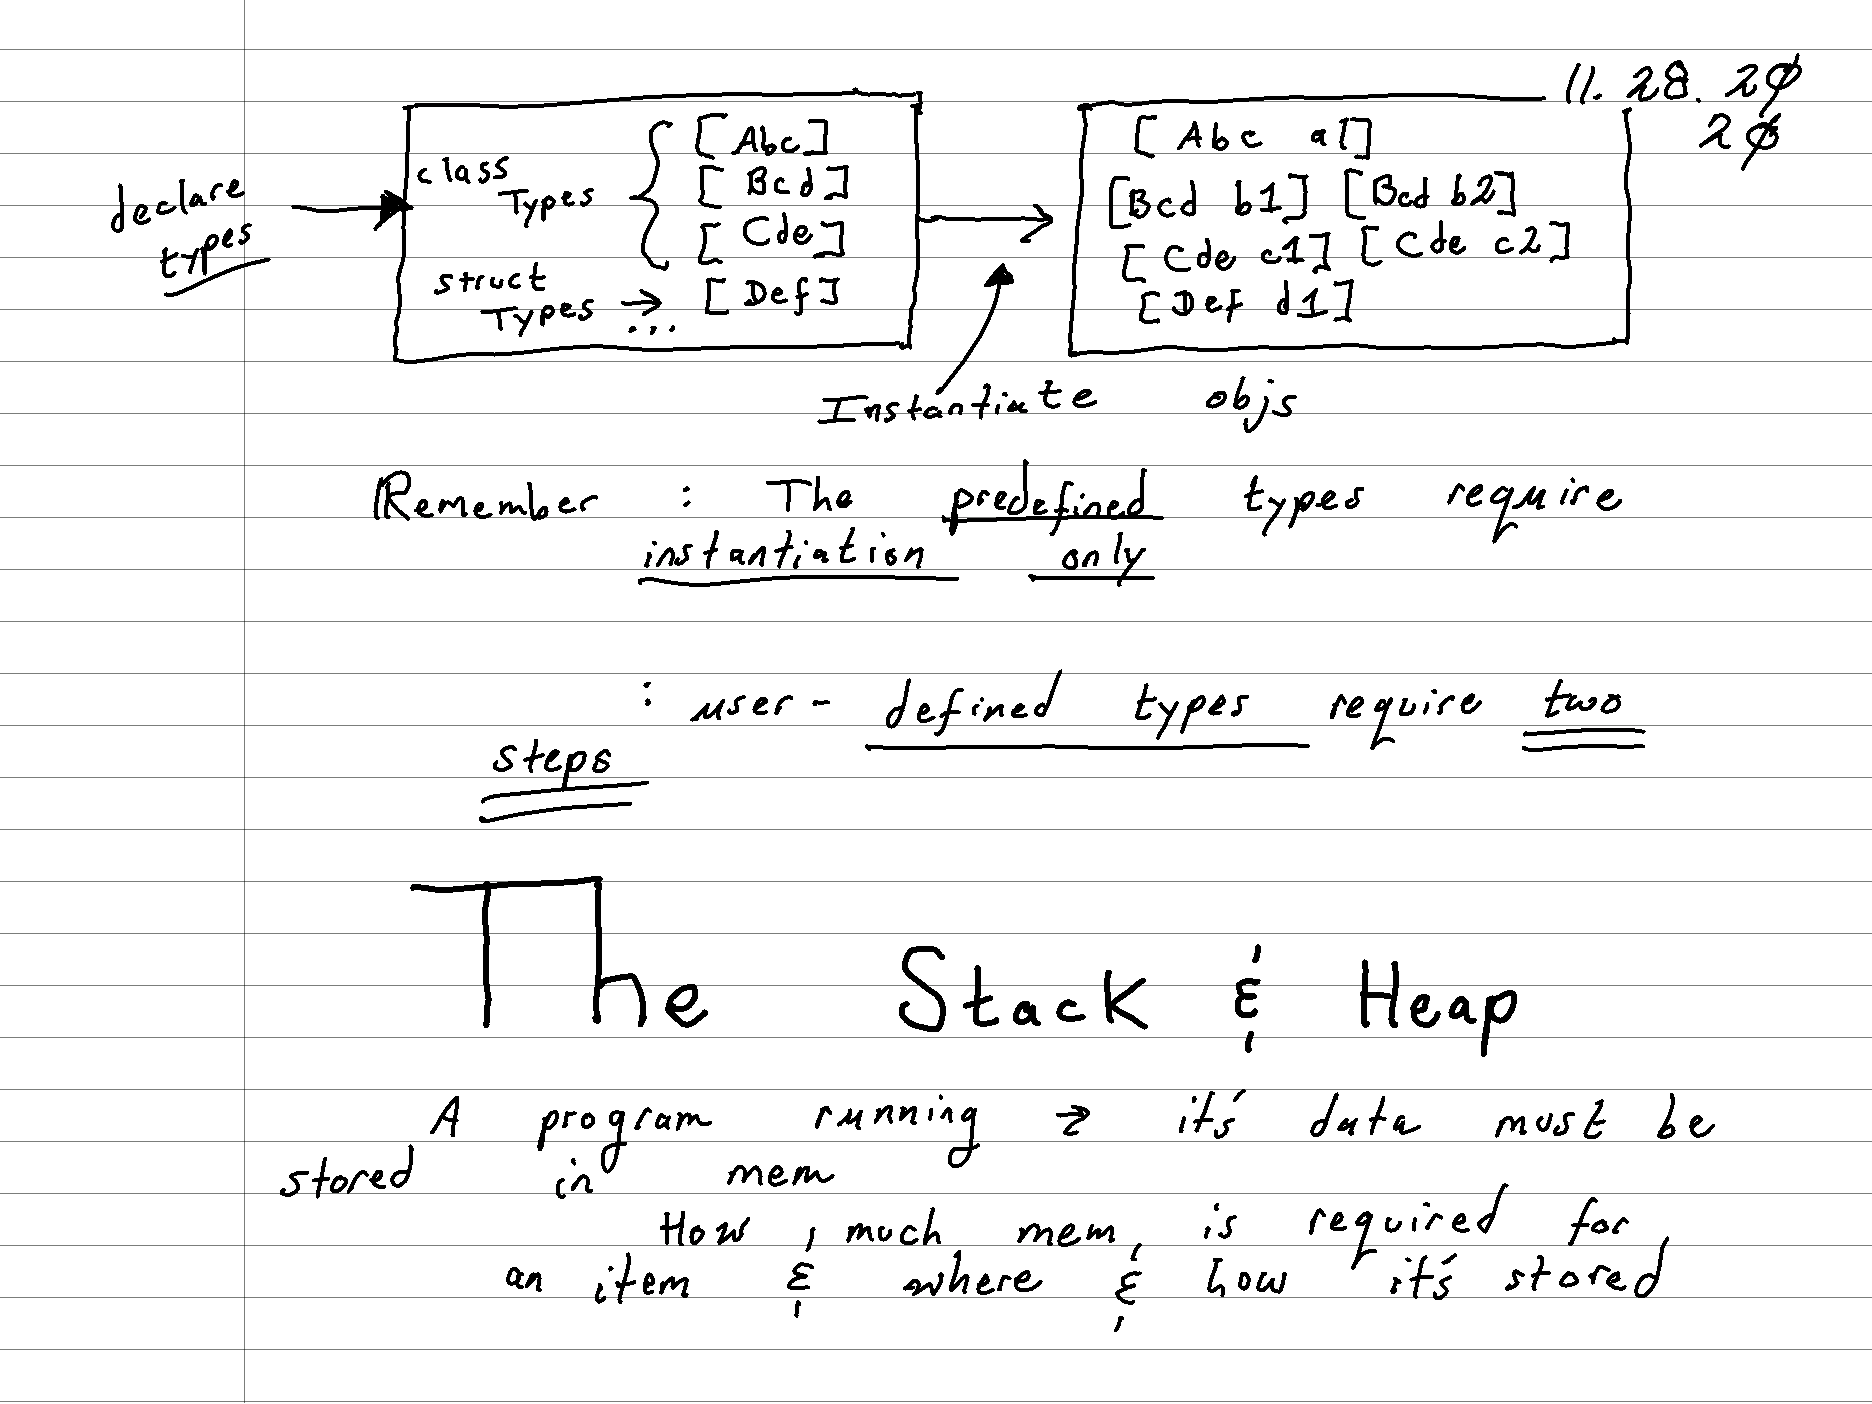 11. 28. 20
20
declare
types
class
Types
[Abc]
[Bcd]
[Cde]
struct
Types → [Def]
...
[Abc a1]
[Bcd b1] [Bcd b2]
[Cde c1] [Cde c2]
[Def d1]
Instantiate objs
Remember : The predefined types require
instantiation only
: user-defined types require two
steps
The Stack & Heap
A program running → it's data must be
stored in mem
How much mem is required for
an item & where & how it's stored